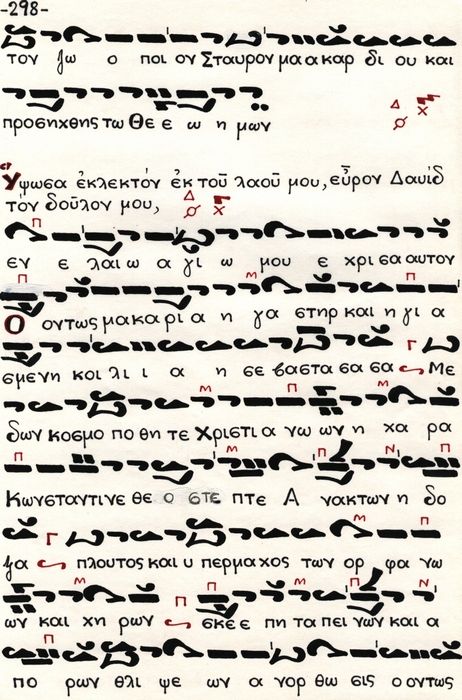 -298-
τον ζω ο ποι ον Σταυρον μα α καρ δι ου και
προσηχθης τω Θε ε ω η μων
Υψωσα ἐκλεκτόν ἐκ τοῦ λαοῦ μου, εὗρον Δαυίδ
τόν δοῦλον μου,
εν ε λαι ω α γι ω μου ε χρι σα αυτον
Ο οντως μακαρι α η γα στηρ και η γι α
σμενη κοι λι ι α η σε βαστα σα σα Με
δων κοσμο πο θη τε Χριστι α νω ων η χα ρα
Κωνσταντινε θε ο στε πτε Α νακτων η δο
ξα πλουτος και υ περμαχος των ορ φα νω
ων και χη ρων σκε ε πη τα πει νων και α
πο ρων θλι ψε ων α νορ θω σις ο οντως